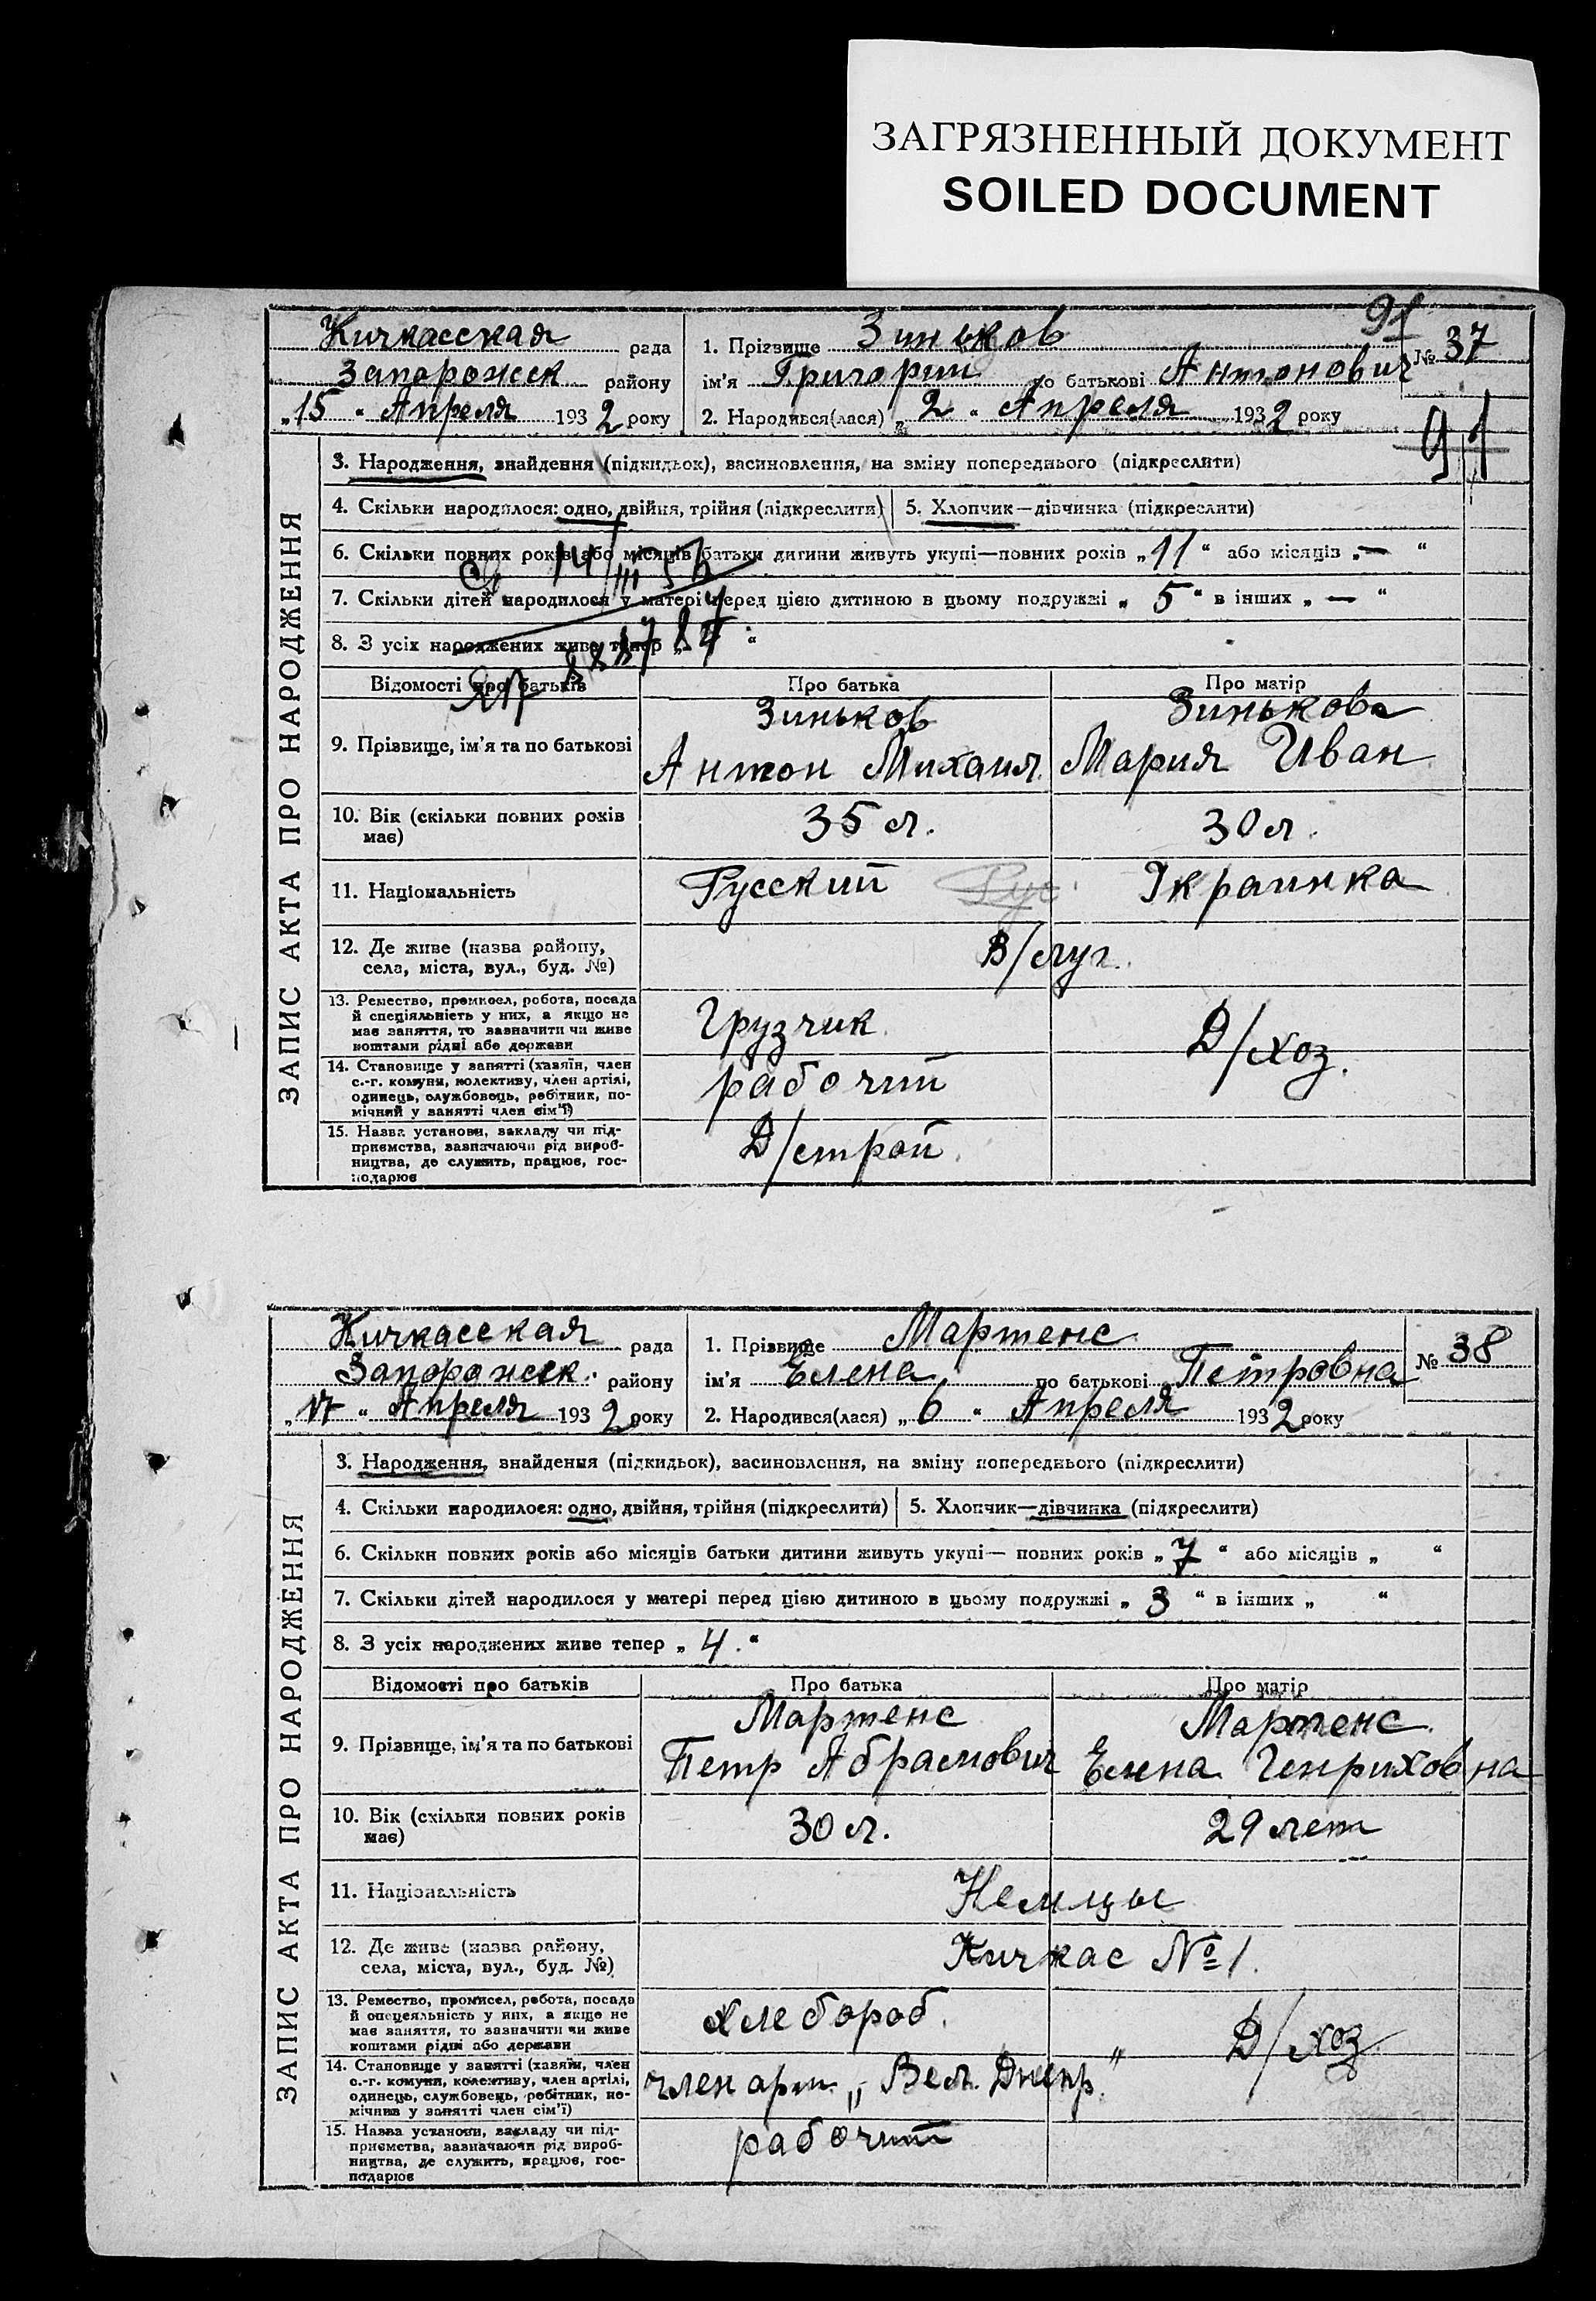 ЗАГРЯЗНЕННЫЙ ДОКУМЕНТ
SOILED DOCUMENT
91
Кичкасская рада
Запорожск району
„15 “ Апреля 1932 року
1. Прізвище Зиньков
ім'я Григорий по батькові Антонович
2. Народився(лася) „2 “ Апреля 1932 року
№ 37
91
ЗАПИС АКТА ПРО НАРОДЖЕННЯ
3. Народження, знайдення (підкидьок), васиновлення, на зміну попереднього (підкреслити)
4. Скільки народилося: одно, двійня, трійня (підкреслити)
5. Хлопчик—дівчинка (підкреслити)
6. Скільки повних років або місяців батьки дитини живуть укупі—повних років „11“ або місяців „—“
7. Скільки дітей народилося у матері перед цією дитиною в цьому подружжі „5“ в інших „—“
8. З усіх народжених живе тепер „
Відомості про батьків
Про батька
Про матір
9. Прізвище, ім'я та по батькові
Зиньков
Антон Михаил.
Зинькова
Мария Иван
10. Вік (скільки повних років має)
35 л.
30 л.
11. Національність
Русский
Рус
Украинка
12. Де живе (назва району,
села, міста, вул., буд. №)
В/луг.
13. Ремество, промисел, робота, посада
й спеціяльність у них, а якщо не
має заняття, то зазначити чи живе
коштами рідні або держави
Грузчик
Д/хоз.
14. Становище у занятті (хазяїн, член
с.-г. комуни, колективу, член артілі,
одинець, службовець, робітник, по-
мічний у занятті член сім'ї)
рабочий
15. Назва установи, закладу чи під-
приємства, зазначаючи рід вироб-
ництва, де служить, працює, гос-
подарює
Д/строй.
Кичкасская рада
Запорожск. району
„17 “ Апреля 1932 року
1. Прізвище Мартенс
ім'я Елена по батькові Петровна
2. Народився(лася) „6 “ Апреля 1932 року
№ 38
ЗАПИС АКТА ПРО НАРОДЖЕННЯ
3. Народження, знайдення (підкидьок), васиновлення, на зміну попереднього (підкреслити)
4. Скільки народилося: одно, двійня, трійня (підкреслити)
5. Хлопчик—дівчинка (підкреслити)
6. Скільки повних років або місяців батьки дитини живуть укупі— повних років „7“ або місяців „ “
7. Скільки дітей народилося у матері перед цією дитиною в цьому подружжі „3“ в інших „ “
8. З усіх народжених живе тепер „4.“
Відомості про батьків
Про батька
Про матір
9. Прізвище, ім'я та по батькові
Мартенс
Петр Абрамович
Мартенс
Елена Генриховна
10. Вік (скільки повних років
має)
30 л.
29 лет
11. Національність
Немцы
12. Де живе (назва району,
села, міста, вул., буд. №)
Кичкас №1.
13. Ремество, промисел, робота, посада
й спецеяльність у них, а якщо не
має заняття, то зазначити чи живе
коштами рідні або держави
хлебороб.
Д/хоз
14. Становище у занятті (хазяїн, член
с.-г. комуни, колективу, член артілі,
одинець, службовець, робітник, по-
мічний у занятті член сім'ї)
член арт. „Вел. Днепр."
15. Назва установи, закладу чи під-
приємства, зазначаючи рід вироб-
ництва, де служить, працює, гос-
подарює
рабочий